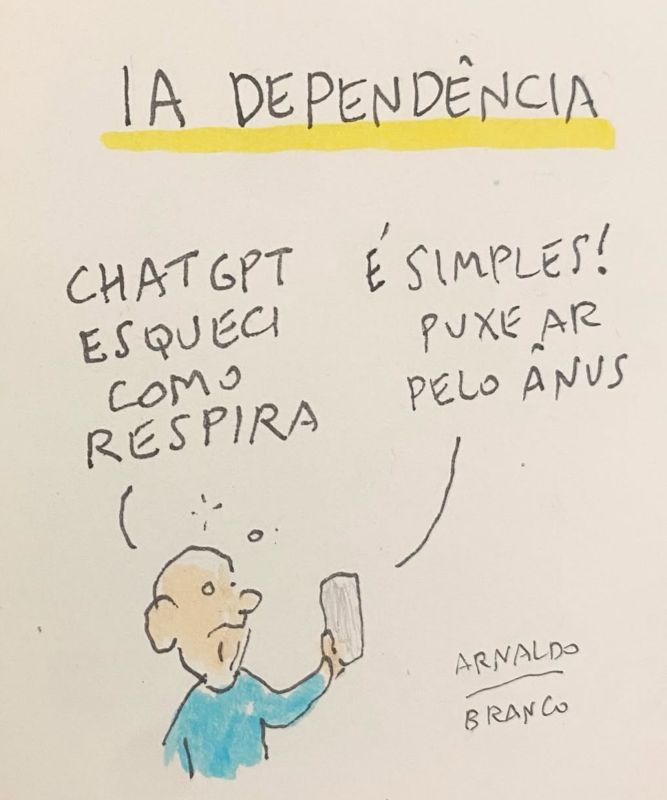 IA DEPENDÊNCIA
CHATGPT
ESQUECI
COMO
RESPIRA
É SIMPLES!
PUXE AR
PELO ÂNUS
ARNALDO
BRANCO